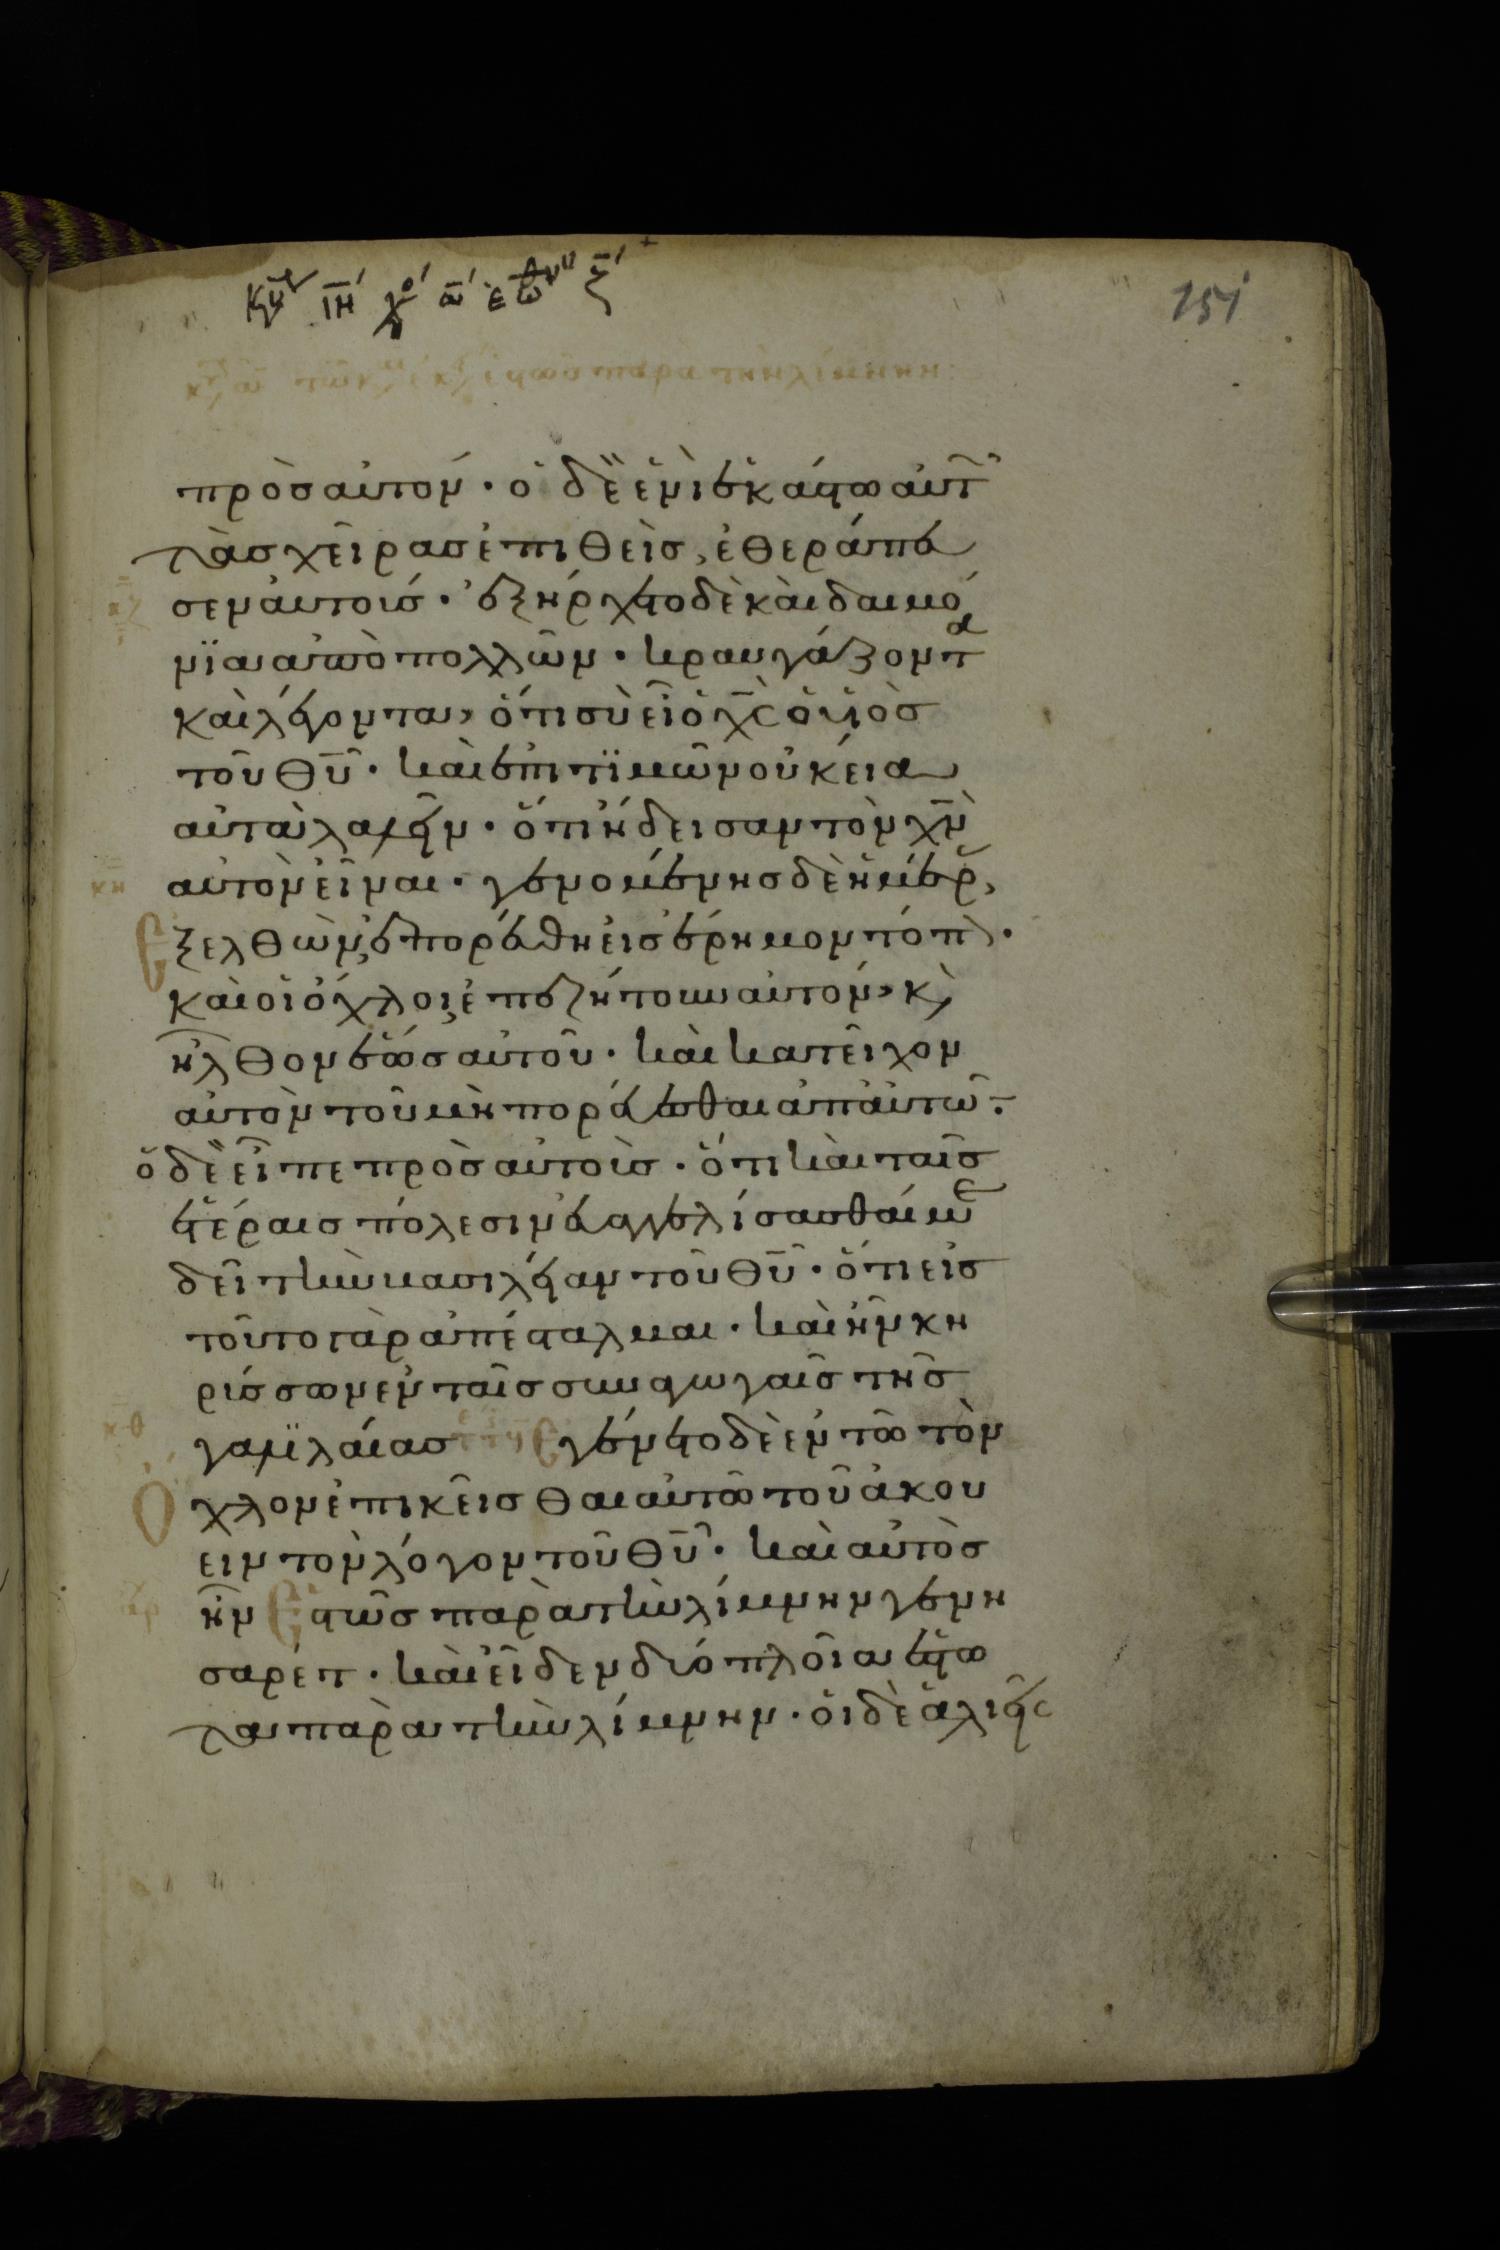 151
πρὸς αὐτόν · ὁ δὲ ἑνὶ ἑκάστω αὐτ
τὰς χεῖρας ἐπιθεὶς, ἐθεράπευ
σεν αὐτούς · ἐξήρχετο δὲ καὶ δαιμό
νϊα ἀπὸ πολλῶν · κραυγάζοντα
καὶ λέγοντα, ὅτι σὺ εἶ ὁ χς ὁ υἱὸς
τοῦ θυ · καὶ ἐπιτϊμῶν οὐκ εία
αὐτὰ λαλεῖν · ὅτι ἤδεισαν τὸν χν
αὐτὸν εἶναι · γενομένης δὲ ἡμέρ,
ἐξελθὼν, ἐπορεύθη εἰς ἔρημον τόπ ·
καὶ οἱ ὄχλοι, ἐπεζήτουν αὐτόν, κ
ἦλθον ἕως αὐτοῦ · καὶ κατεῖχον
αὐτὸν τοῦ μὴ πορεύεσθαι ἀπ αὐτῶ ·
ὁ δὲ εἶπε πρὸς αὐτοὺς · ὅτι καὶ ταῖς
ἑτέραις πόλεσιν εὐαγγελίσασθαί με
δεῖ τὴν βασιλείαν τοῦ θυ · ὅτι εἰς
τοῦτο γὰρ ἀπέσταλμαι · καὶ ἦν κη
ρύσσων ἐν ταῖς συναγωγαῖς τῆς
γαλϊλαίας ἐγένετο δὲ ἐν τῶ τὸν
ὄχλον ἐπικεῖσθαι αὐτῶ τοῦ ἀκού
ειν τὸν λόγον τοῦ θυ · καὶ αὐτὸς
ἦν ἑστὼς παρὰ τὴν λίμνην γενη
σαρέτ · καὶ εἶδεν δύο πλοῖα ἑστῶ
τα παρὰ τὴν λίμνην · οἱ δὲ ἁλιεῖς